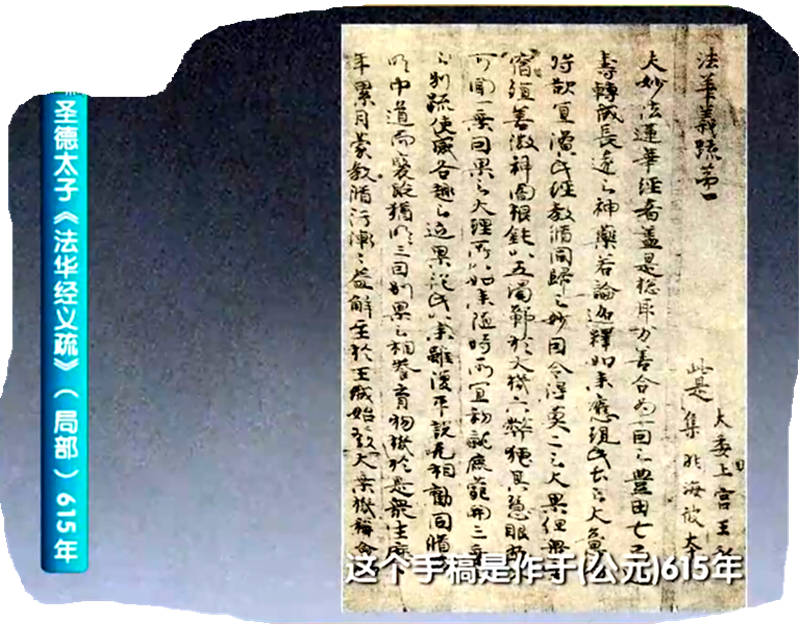 圣德太子《法华经义疏》(局部)615年
法華義疏第一
此是
大委上宮王私
集非海彼本
夫妙法蓮華經者蓋是惣取万善合為一因之豊田七
壽轉成長遠之神藥若論迦釋如来應現此土之大意
将欲宜演此經教脩同歸之妙因令得莫二之大果但衆
宿殖善微神闇根鈍以五濁鄣於大機六弊掩其慧眼
可聞一乗因果之大理所以如来随時所宜初就鹿菀開三乗
之別疏使感各趣之近果従此以来雖復平説无相勧同脩
明中道而褒貶猶明三因別果之相養育物機於是衆生歴
年累月蒙教脩行漸々益解至於王城始發大乗機稱會
这个手稿是作于(公元)615年